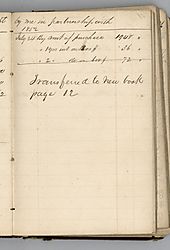 by me in partnership with
1852
July 24 By amt of purchase 1948 "
" 1900 int on
" 2 " do on 72 "
Transfered to New book
page 12